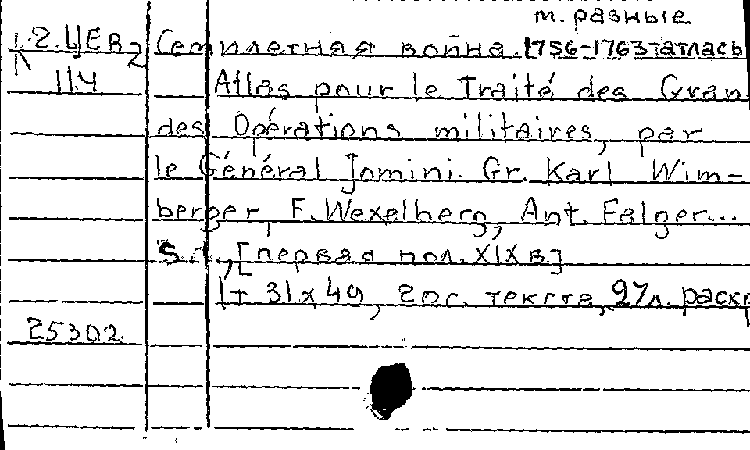 т. разные
1.2.ЦЕВ2 Семилетняя война.1756-1763-атласы
114 Atlas pour le Traité des Gran
des Opérations militaires, par
le Général Jomini. Gr. Karl Wim-
berger, F. Wexelberg, Ant. Falger...
S.l., [первая пол. XIX в]
1т 31х49, 20с. текста, 27л. раскр
25302